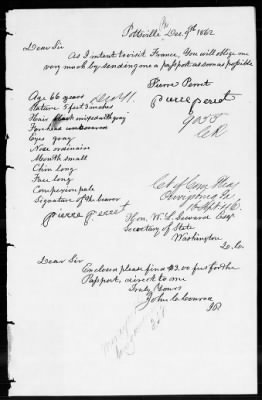 Pottsville Pa Dec 9th 1862
Dear Sir
As I intent to visit France, You will oblige me
very much by sending me a passport as soon as possible
Pierre Perret
pierre perret
Age 66 years
Stature 5 feet 3 inches
Hair black mixed with gray
Forehead
Eyes gray
Nose ordinaire
Mounth small
Chin long
Face long
Complexion pale
Signature of the bearer
pierre perret
9055
Hon. W. H. Seward Esqr
Secretary of State
Washington
D. Co.
Dear Sir
Enclosed please find $3.00 fees for the
Passport, direct to me
Truly Yours
John C. Conrad